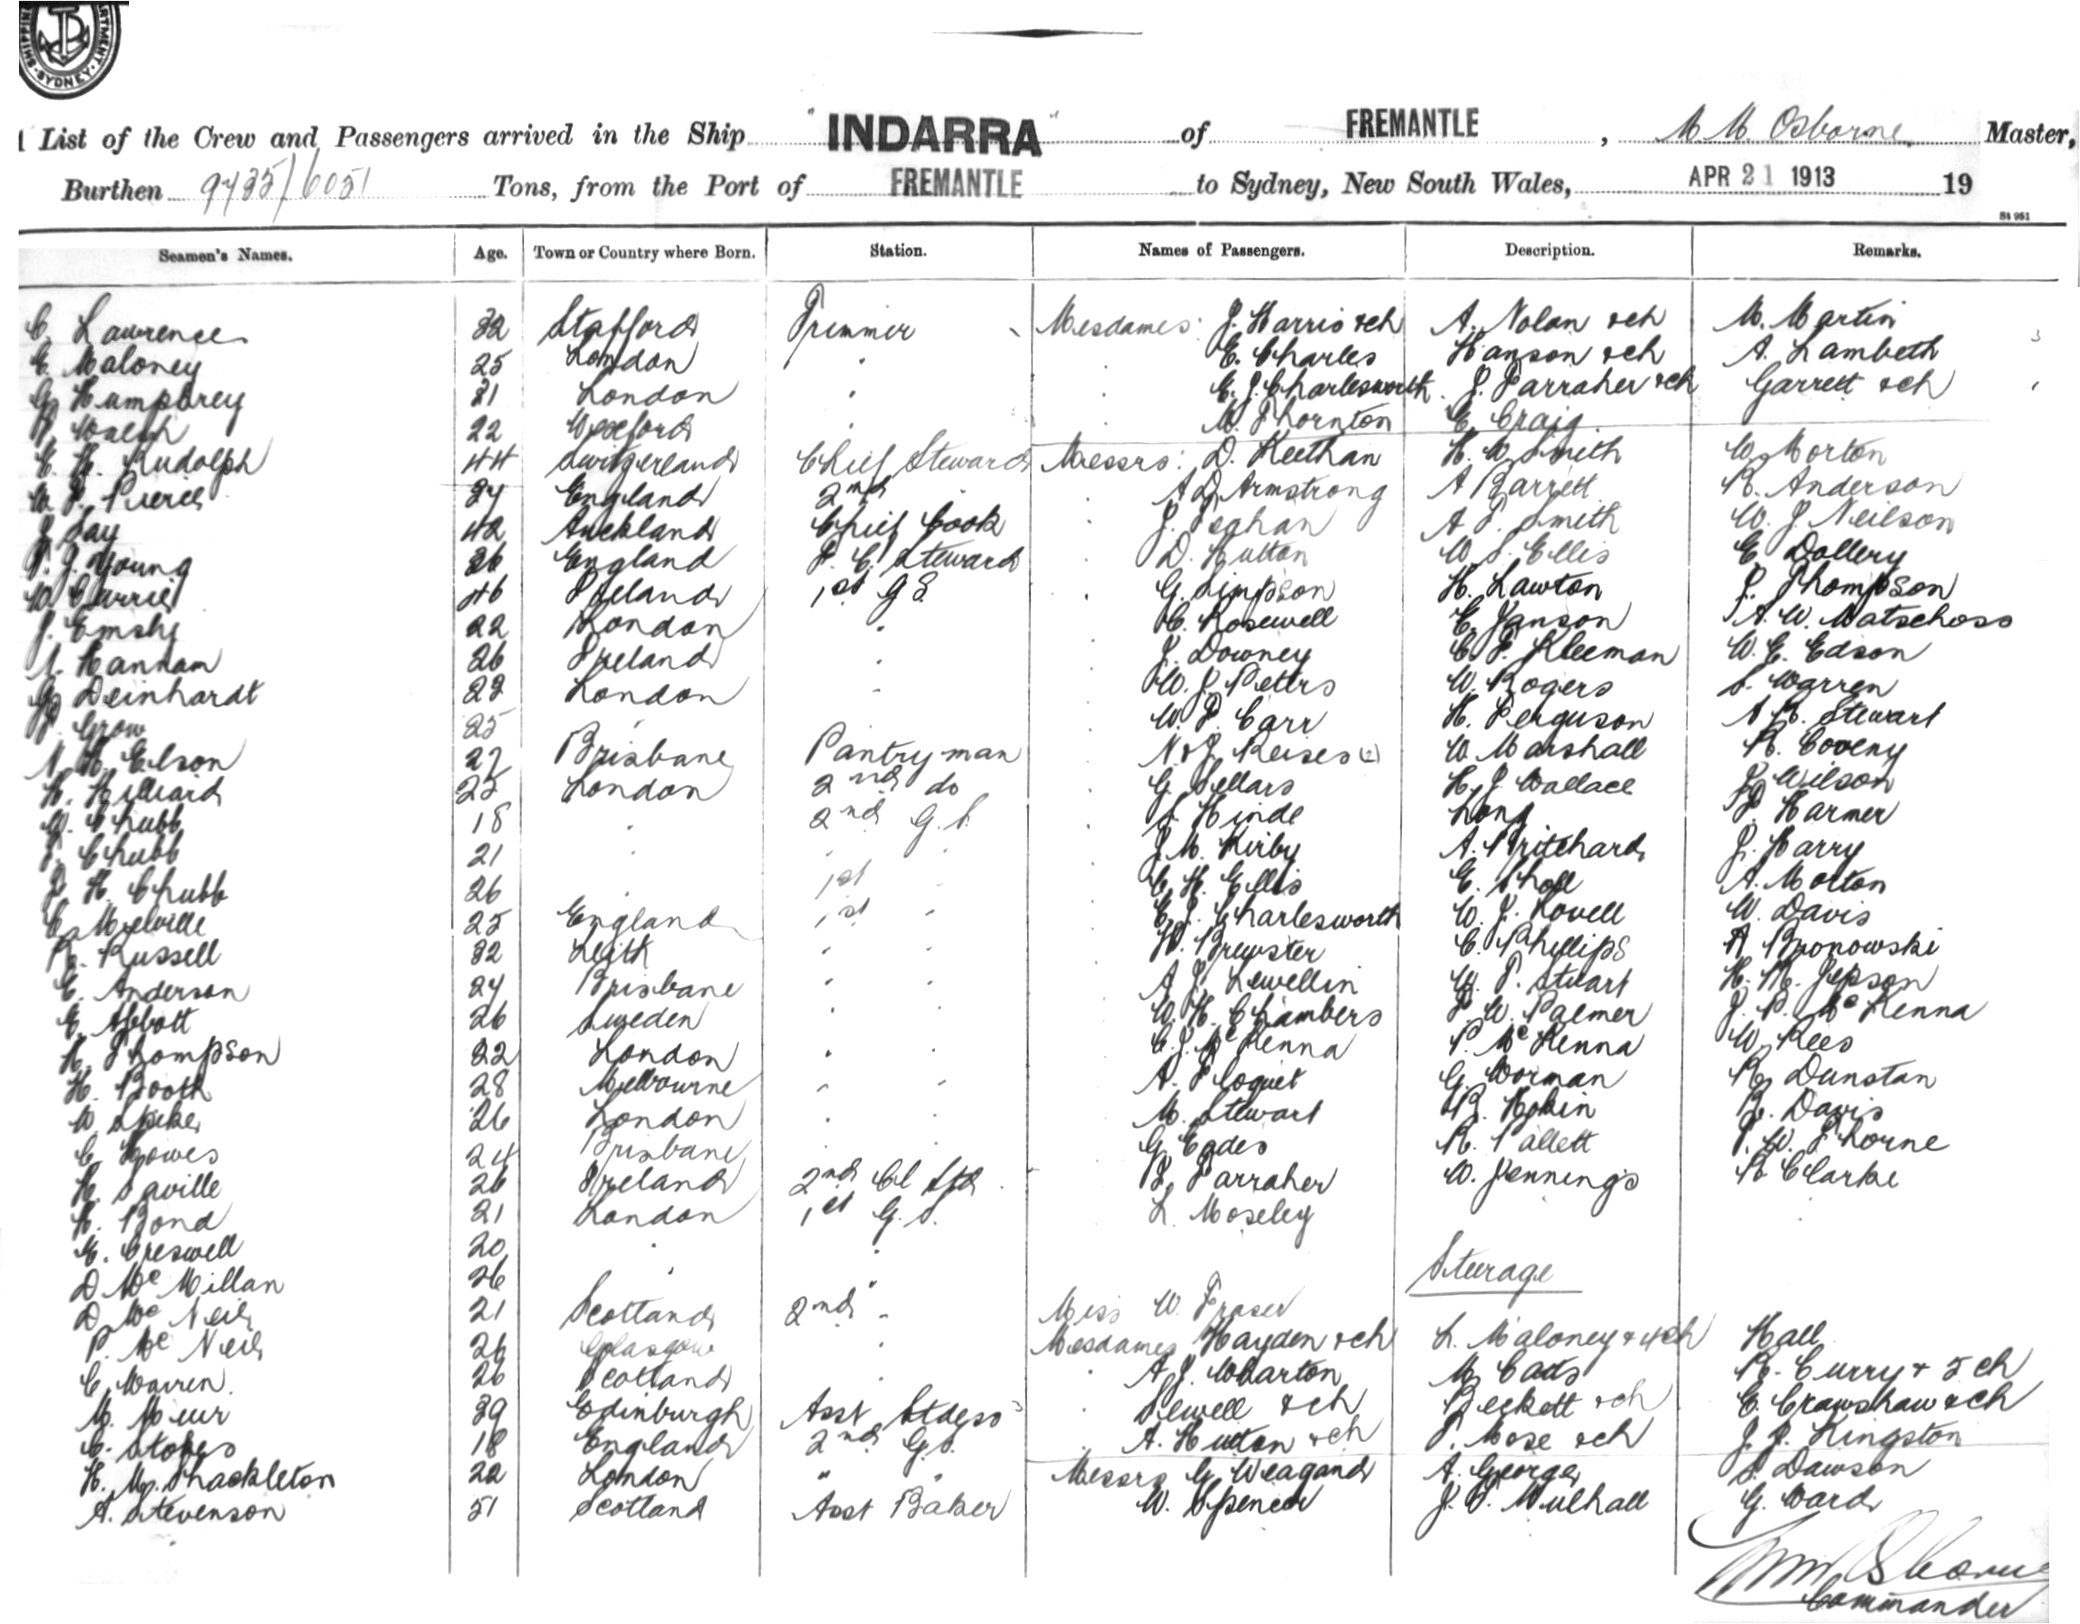 SYDNEY
List of the Crew and Passengers arrived in the Ship "INDARRA" of FREMANTLE, M M Osborne Master,
Burthen 9735/6051 Tons, from the Port of FREMANTLE to Sydney, New South Wales, APR 21 1913 19
St 961
Seamen's Names. Age. Town or Country where Born. Station. Names of Passengers. Description. Remarks.
C. Lawrence 32 Stafford Trimmer Mesdames: J. Harris & ch A. Nolan & ch M. Martin
E. Maloney 25 London " E. Charles Hanson & ch A. Lambeth
G. Humphrey 21 London " E. J. Charlesworth J. Farraher & ch Garrett & ch
Walsh 22 Wexford " M. Thornton C. Craig
E. H. Rudolph 44 Switzerland Chief Steward Messrs: D. Keethan H. W. Smith W. Morton
England 2nd " A D Armstrong A Barrett R. Anderson
J. Say 42 Auckland Chief Cook J. Feghan A. F. Smith W. J Neilson
T. J. Young 26 England F. C. Steward D. Hutton W. S. Ellis E Dollery
W. Currie 46 Ireland 1st G S. G. Simpson H. Lawton J. Thompson
J. 22 London " C. Rosewell E. Janson A. W. Matschoss
Hannam 26 Ireland " J. Downey C. F. Kleeman W. E. Edson
G. Deinhardt 22 London " W. J. Petters W. Rogers S. Warren
Grow 25 " W. F. Carr H. Ferguson A R. Stewart
A. H. Elson 27 Brisbane Pantryman N & J Reises (2) W. Marshall R. Coveny
H. Hilliard 25 London 2nd do G. Sellars H. J Wallace J Wilson
W. Chubb 18 " 2nd G. S. S. Hinde Long F. Harmer
J. Chubb 21 " " J. M. Kirby A. Pritchard J. Harry
J. H. Chubb 26 " 1st " C. H. Ellis E. Sholl A. Molton
C. Melville 25 England 1st " E. J. Charlesworth W. J. Lovell W. Davis
R. Russell 32 Leith " " H. Brewster C. Phillips A Bronowski
E. Anderson 24 Brisbane " " A. J. Lewellin W. F. Stuart H. H. Jepson
E. Abbott 26 Sweden " " W. H. Chambers F. W. Palmer J. P. McKenna
H. Thompson 22 London " " C. J. McKenna P. McKenna W. Rees
H. Booth 28 Melbourne " " A. Floquet G. Worman R. Dunstan
W. Spike 26 London " " M. Stewart R. Hokin B. Davis
C. Howes 24 Brisbane " " G. Eades R. Pallett F. W. Thorne
H. Saville 26 Ireland 2nd Cl Std J. Farraher W. Jennings R Clarke
H. Bond 21 London 1st G. S. L. Moseley
E. Creswell 20 " "
Steerage
D McMillan 26 " "
D. McNeil 21 Scotland 2nd " Miss W. Fraser
P. McNeil 26 Glasgow " Mesdames Hayden & ch L. Maloney & 4 ch Hall
C. Warren. 26 Scotland " " A. J. Wharton M. Cats R. Curry & 5 ch
M. Meur 39 Edinburgh Asst Stdess " Sewell & ch Beckett & ch E. Crawshaw & ch
C. Stokes 18 England 2nd G. S. " A. Hutton & ch F. Mose & ch J. J. Kingston
H. M. Shackleton 22 London " " Messrs G. Weagand A. George Dawson
A. Stevenson 51 Scotland Asst Baker W. Spencer J. F. Mulhall G. Ward
Commander